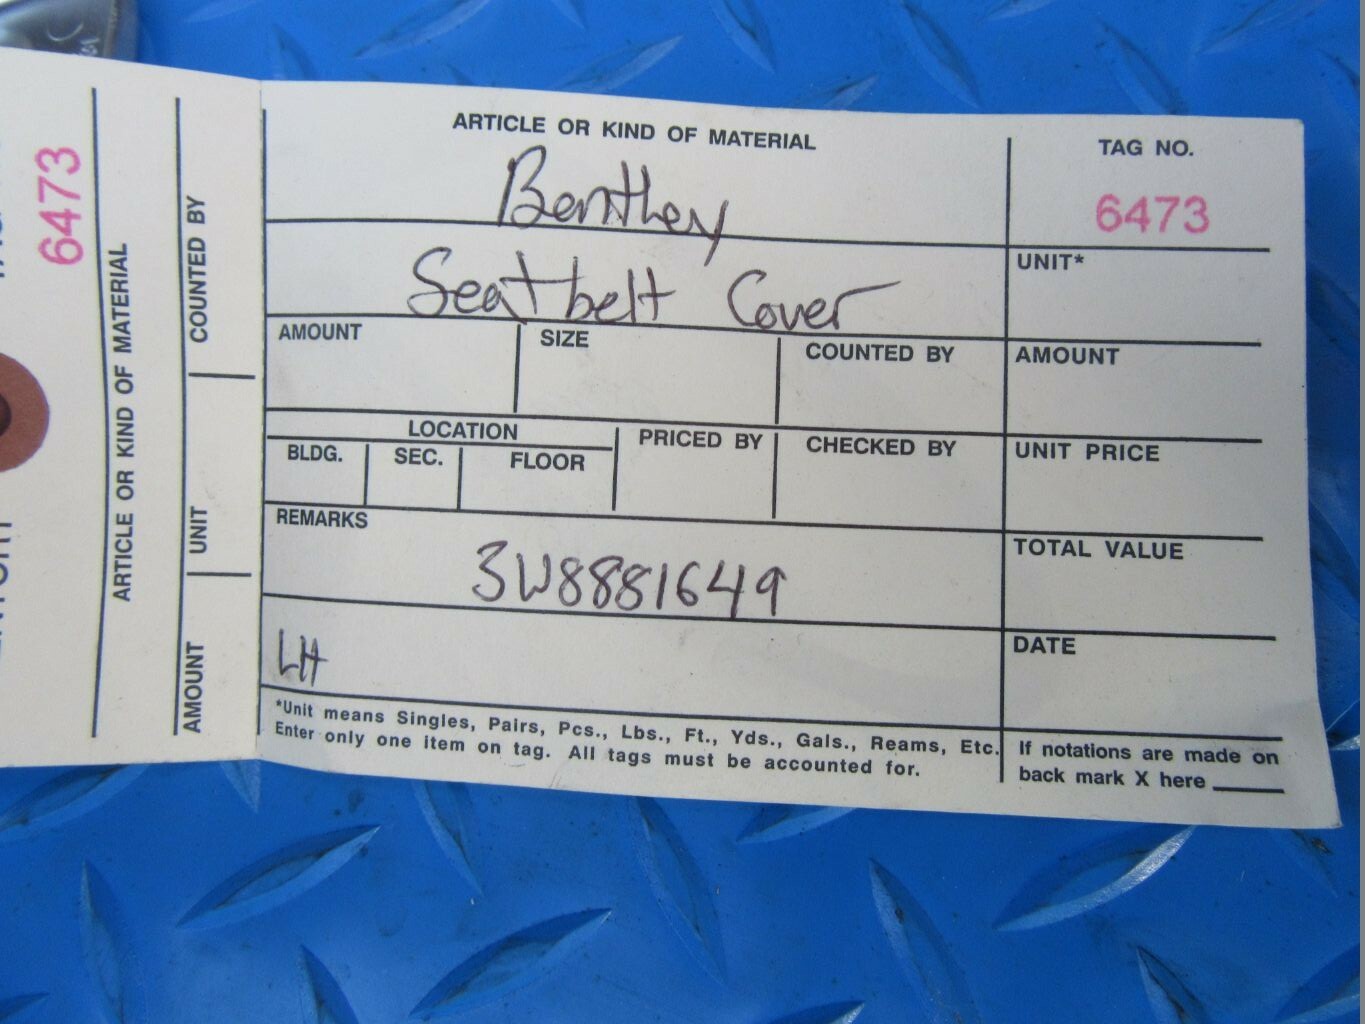 6473
ARTICLE OR KIND OF MATERIAL
COUNTED BY
UNIT
AMOUNT
ARTICLE OR KIND OF MATERIAL
Bentley
Seatbelt Cover
TAG NO.
6473
UNIT*
AMOUNT
SIZE
COUNTED BY
AMOUNT
LOCATION
BLDG.
SEC.
FLOOR
PRICED BY
CHECKED BY
UNIT PRICE
REMARKS
3W8881649
TOTAL VALUE
LH
DATE
*Unit means Singles, Pairs, Pcs., Lbs., Ft., Yds., Gals., Reams, Etc.
Enter only one item on tag. All tags must be accounted for.
If notations are made on
back mark X here